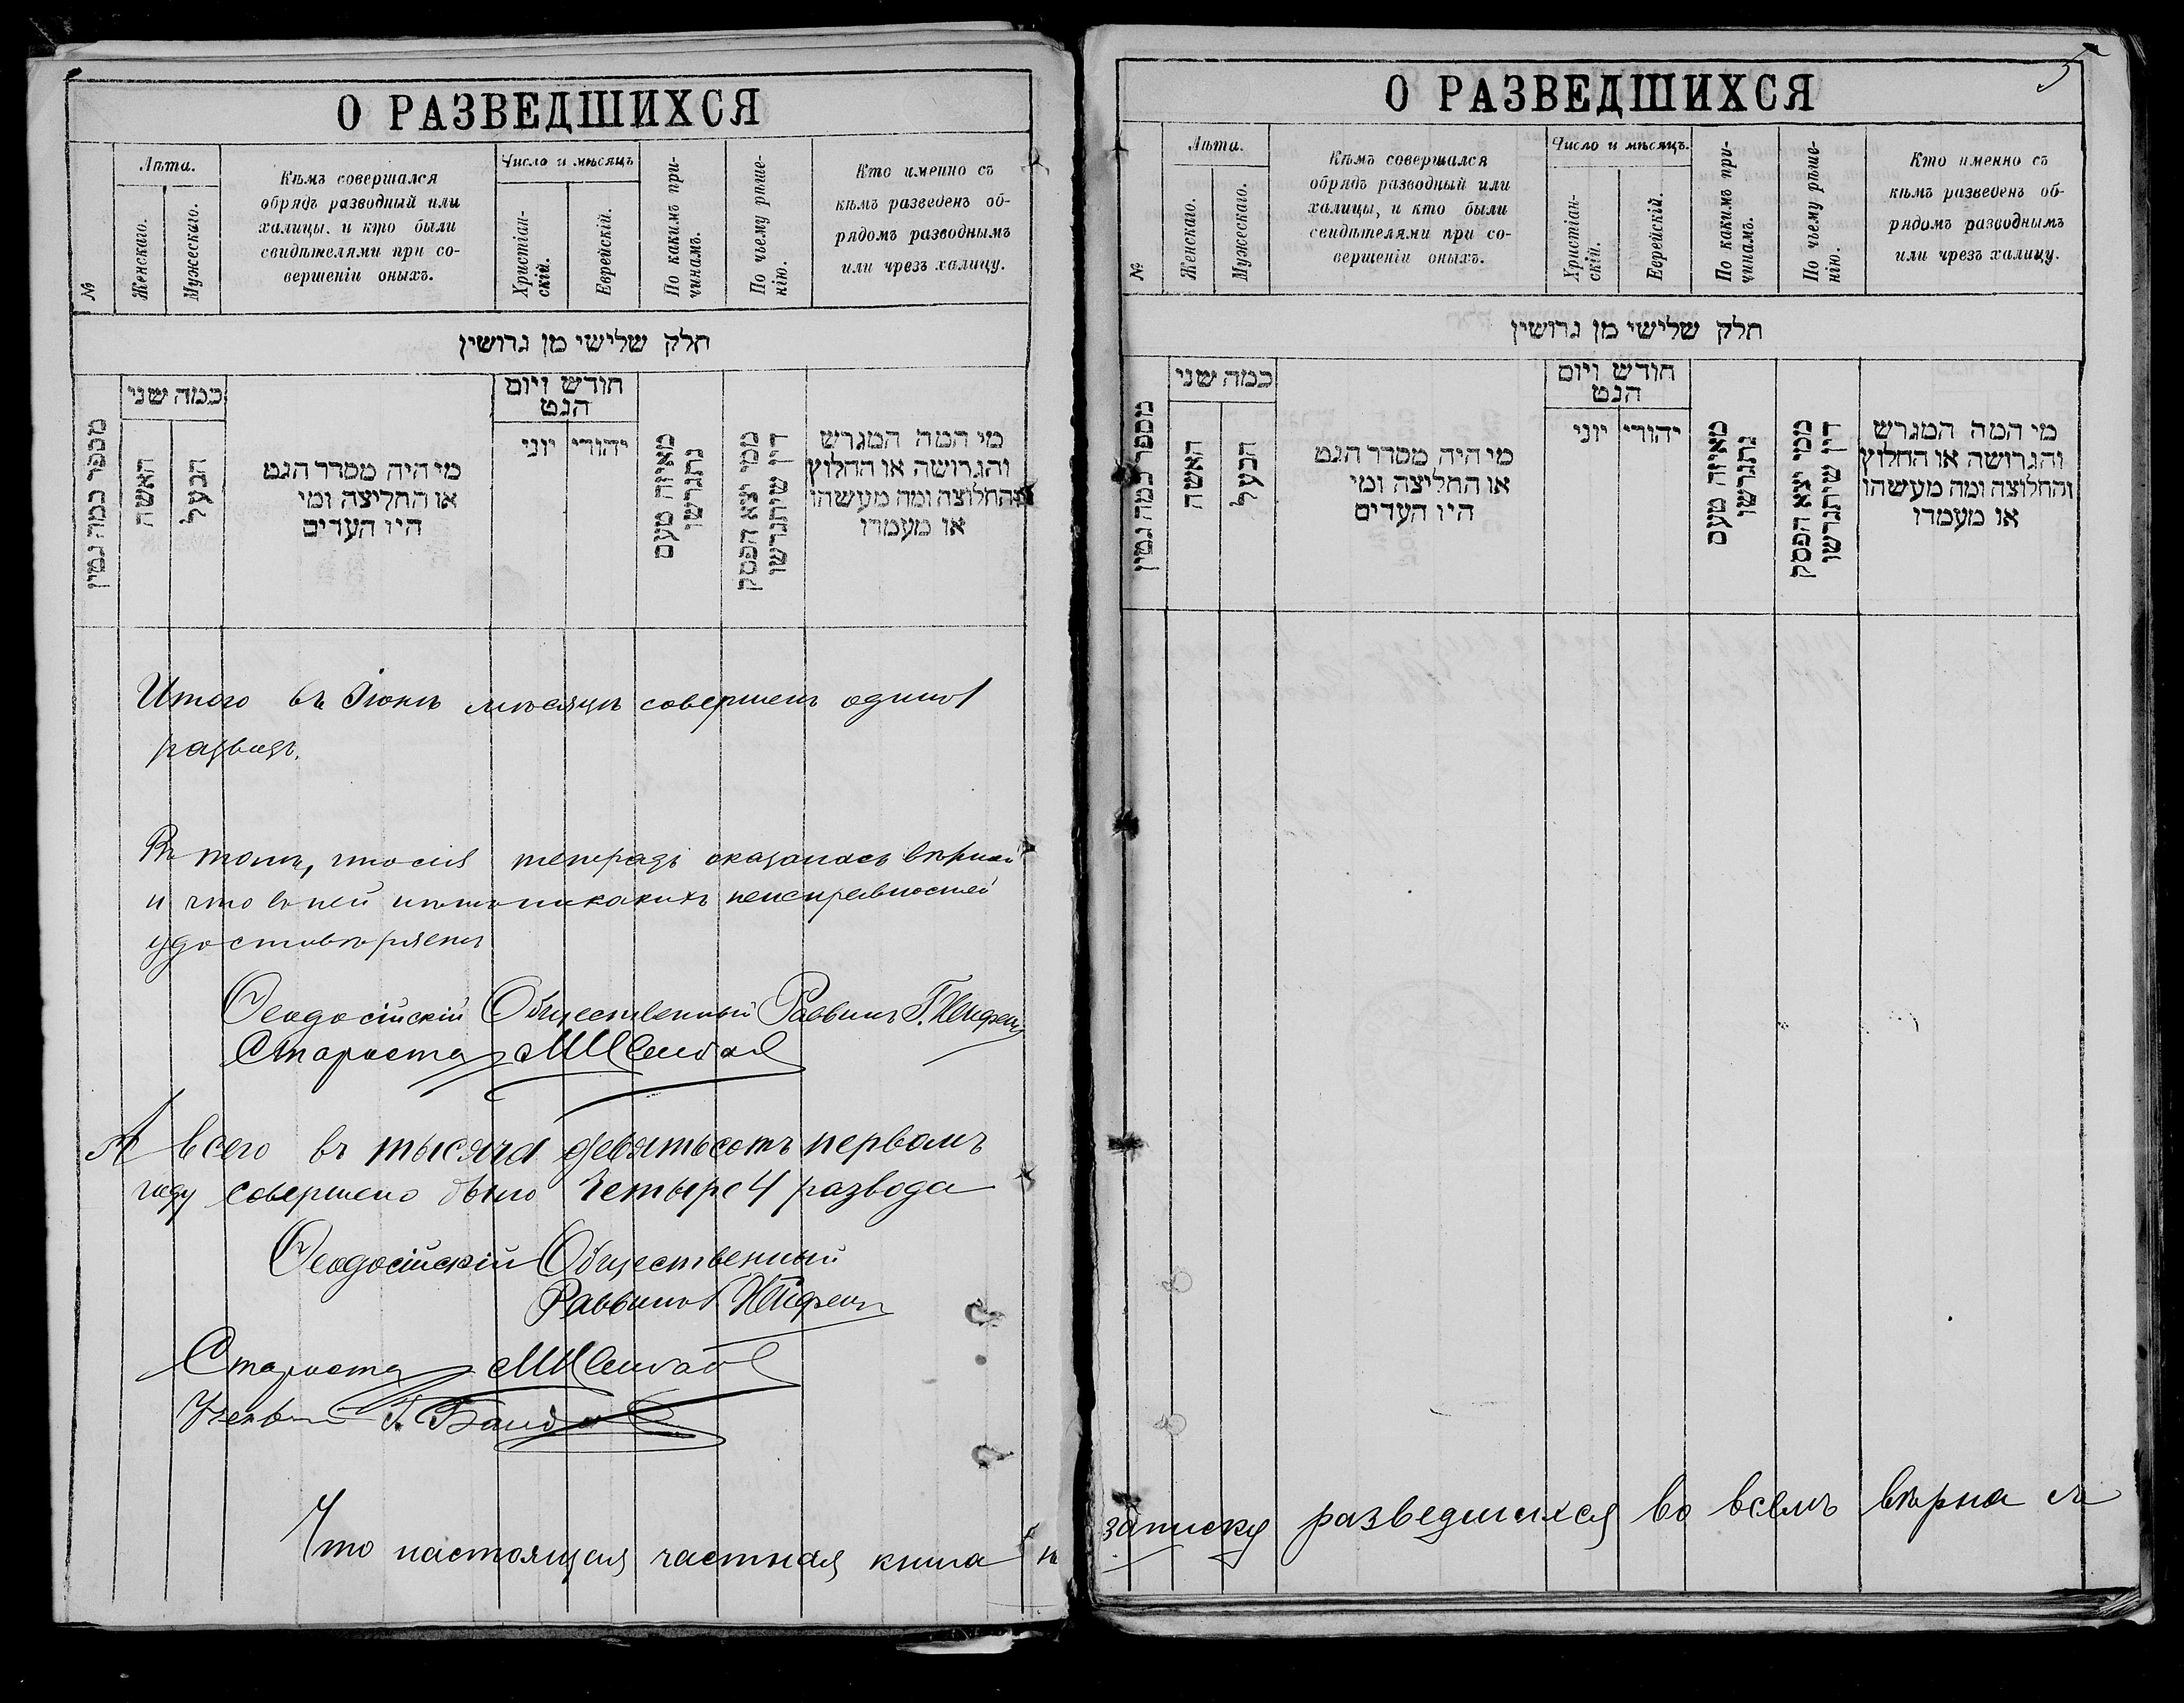 О РАЗВЕДШИХСЯ
№
Лѣта.
Женскаго.
Мужескаго.
Кѣмъ совершался
обрядъ разводный или
халицы, и кто были
свидѣтелями при со-
вершеніи оныхъ.
Число и мѣсяцъ
Христіан-
скій.
Еврейскій.
По какимъ при-
чинамъ.
По чьему рѣше-
нію.
Кто именно съ
кѣмъ разведенъ об-
рядомъ разводнымъ
или чрезъ халицу.
חלק שלישי מן גרושין
מספר כמה גטין
כמה שני
האשה
הבעל
מי היה מסדר הגט
או החליצה ומי
היו העדים
חודש ויום
הגט
יוני
יהודי
מאיזה טעם
נתגרשו
ממי יצא הפסק
דין שיתגרשו
מי המה המגרש
והגרושה או החלוץ
והחלוצה ומה מעשהו
או מעמדו
Итого въ Іюнѣ мѣсяцѣ совершенъ одинъ 1
разводъ.
Въ томъ, что сія тетрадь оказалась вѣрной
и что въ ней нѣтъ никакихъ неисправностей
удостовѣряемъ
Ѳеодосійскій Общественный Раввинъ Г.
Староста
А всего въ тысяча девятьсотъ первомъ
году совершено было четыре 4 развода
Ѳеодосійскій Общественный
Раввинъ Г.
Староста
Г.
Что настоящая частная книга на
О РАЗВЕДШИХСЯ
5
№
Лѣта.
Женскаго.
Мужескаго.
Кѣмъ совершался
обрядъ разводный или
халицы, и кто были
свидѣтелями при со-
вершеніи оныхъ.
Число и мѣсяцъ.
Христіан-
скій.
Еврейскій.
По какимъ при-
чинамъ.
По чьему рѣше-
нію.
Кто именно съ
кѣмъ разведенъ об-
рядомъ разводнымъ
или чрезъ халицу.
חלק שלישי מן גרושין
מספר כמה גטין
כמה שני
האשה
הבעל
מי היה מסדר הגט
או החליצה ומי
היו העדים
חודש ויום
הגט
יוני
יהודי
מאיזה טעם
נתגרשו
ממי יצא הפסק
דין שיתגרשו
מי המה המגרש
והגרושה או החלוץ
והחלוצה ומה מעשהו
או מעמדו
записку разведшихся во всемъ вѣрна съ